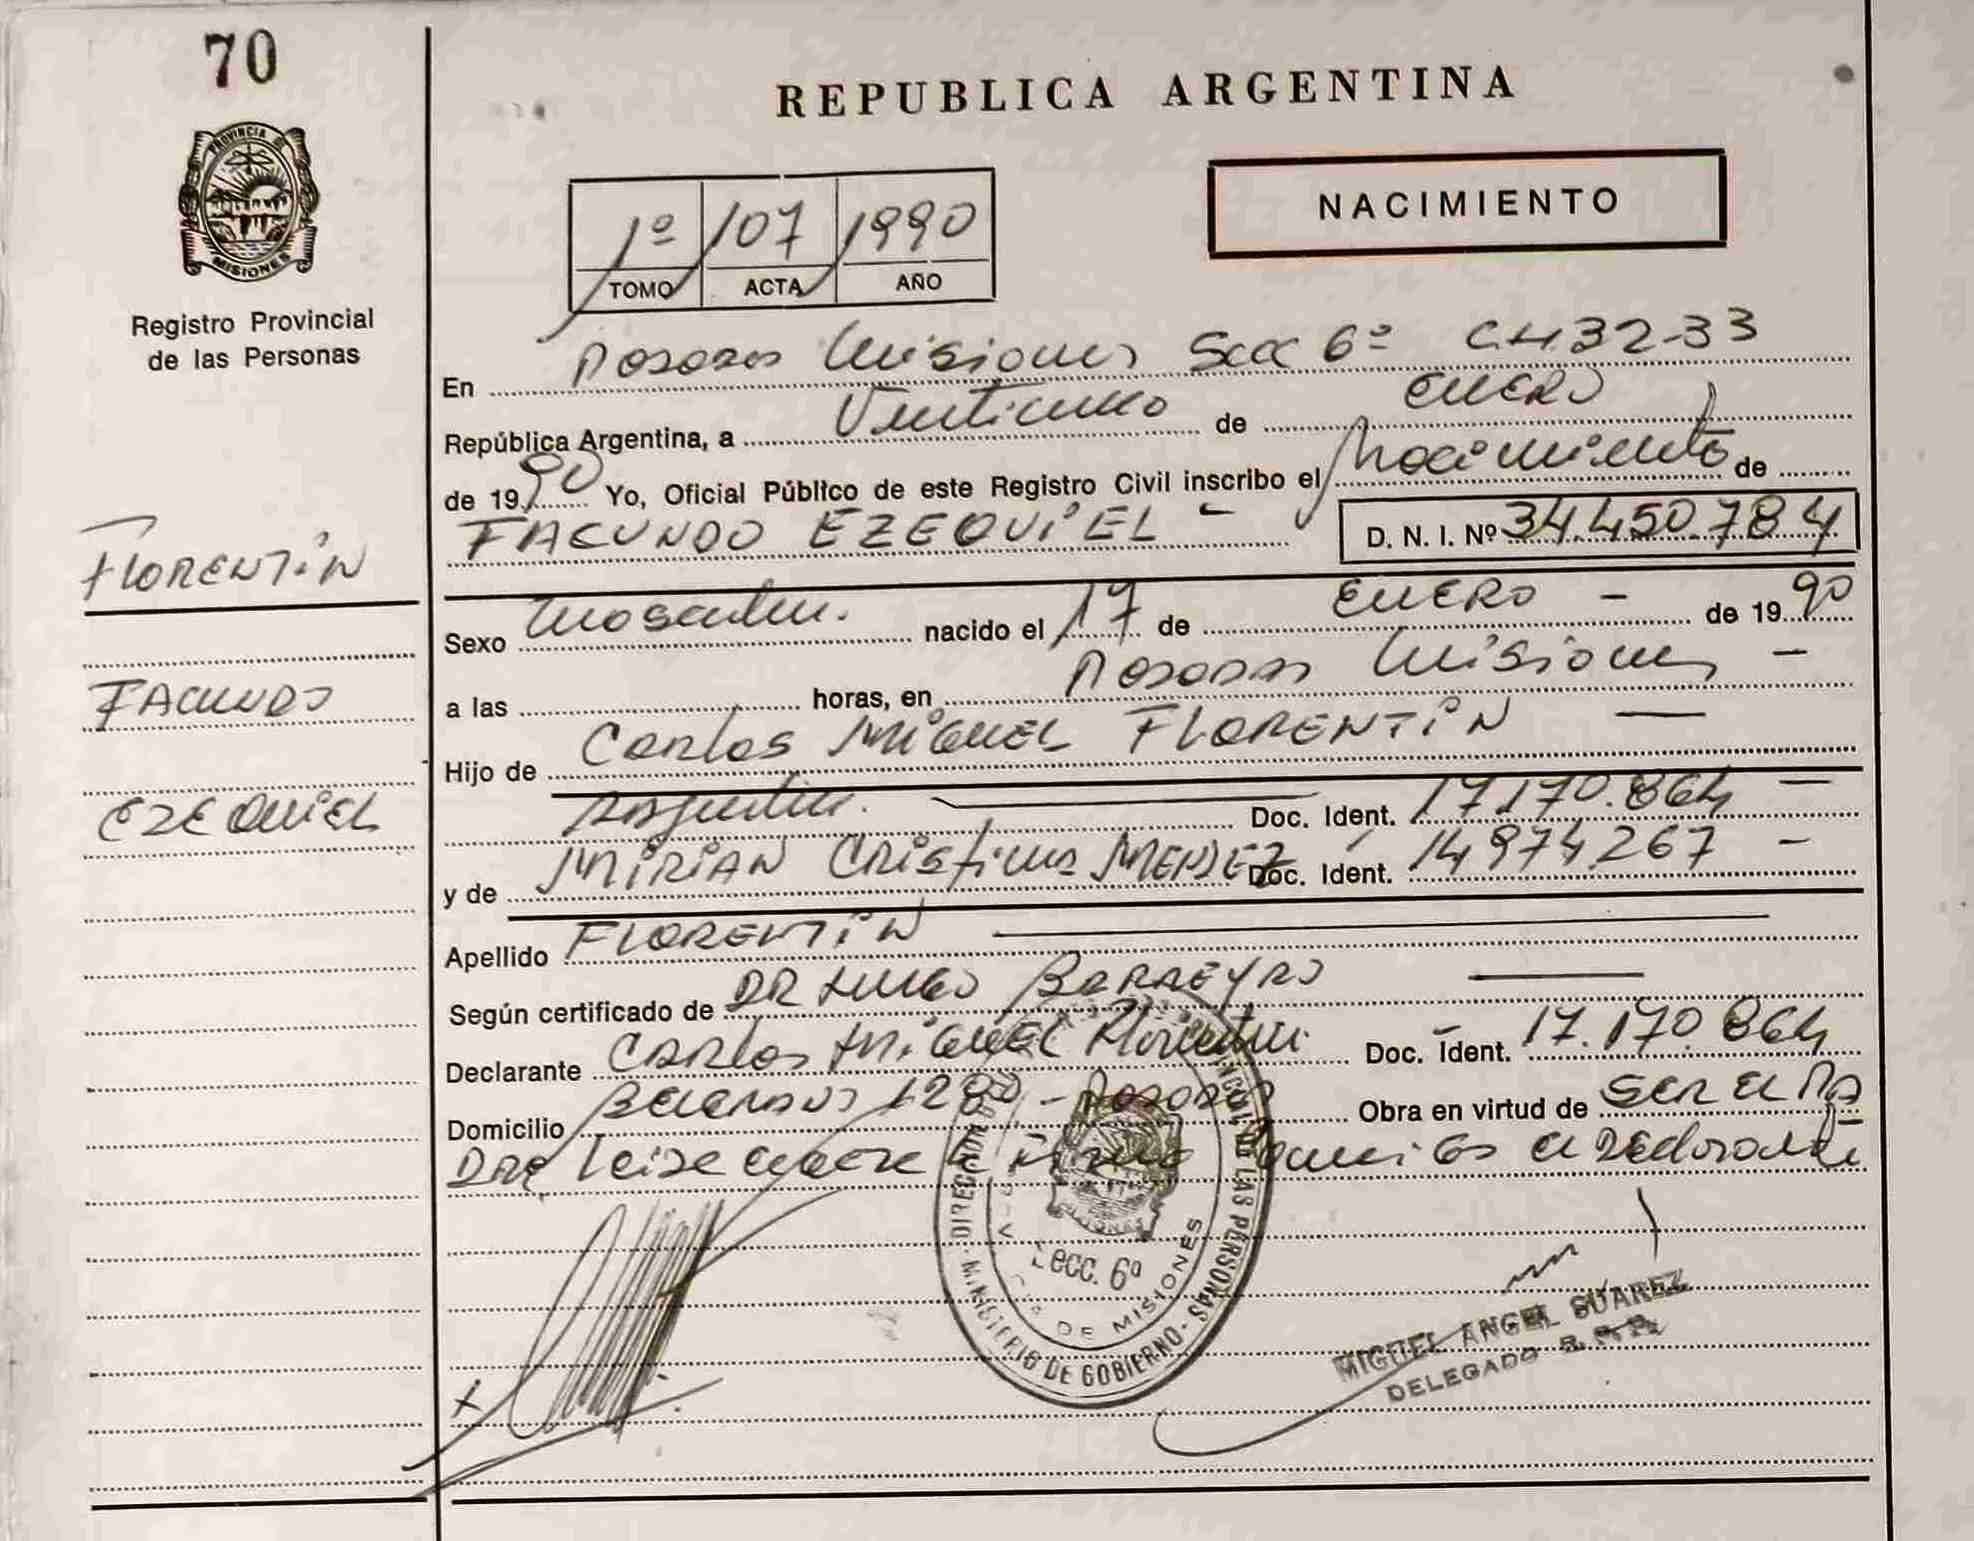 70
REPUBLICA ARGENTINA
PROVINCIA DE
MISIONES
Registro Provincial
de las Personas
1º 107 1990
TOMO ACTA AÑO
NACIMIENTO
En Posadas Misiones Secc 6º C.H. 32-33
República Argentina, a Venticinco de ENERO
de 1990 Yo, Oficial Público de este Registro Civil inscribo el Nacimiento de
FACUNDO EZEQUIEL - D. N. I. Nº 34.450.784
FLORENTIN
FACUNDO
EZEQUIEL
Sexo Masculin. nacido el 17 de ENERO - de 1990
a las horas, en Posadas Misiones -
Hijo de Carlos MIGUEL FLORENTIN
Argentin. Doc. Ident. 17.170.864 -
y de MIRIAN CRISTINA MENDEZ Doc. Ident. 14974267 -
Apellido FLORENTIN
Según certificado de DR HUGO BARREYRO
Declarante CARLOS MIGUEL Florentin Doc. Ident. 17.170.864
Domicilio BELGRANO 1280 - Posadas Obra en virtud de SER EL PA
DRE Leida el Declarante
DIRECCION LAS PERSONAS - MINISTERIO DE GOBIERNO -
MISIONES
Secc. 6º
DE MISIONES
MIGUEL ANGEL SUAREZ
DELEGADO R.P.P.